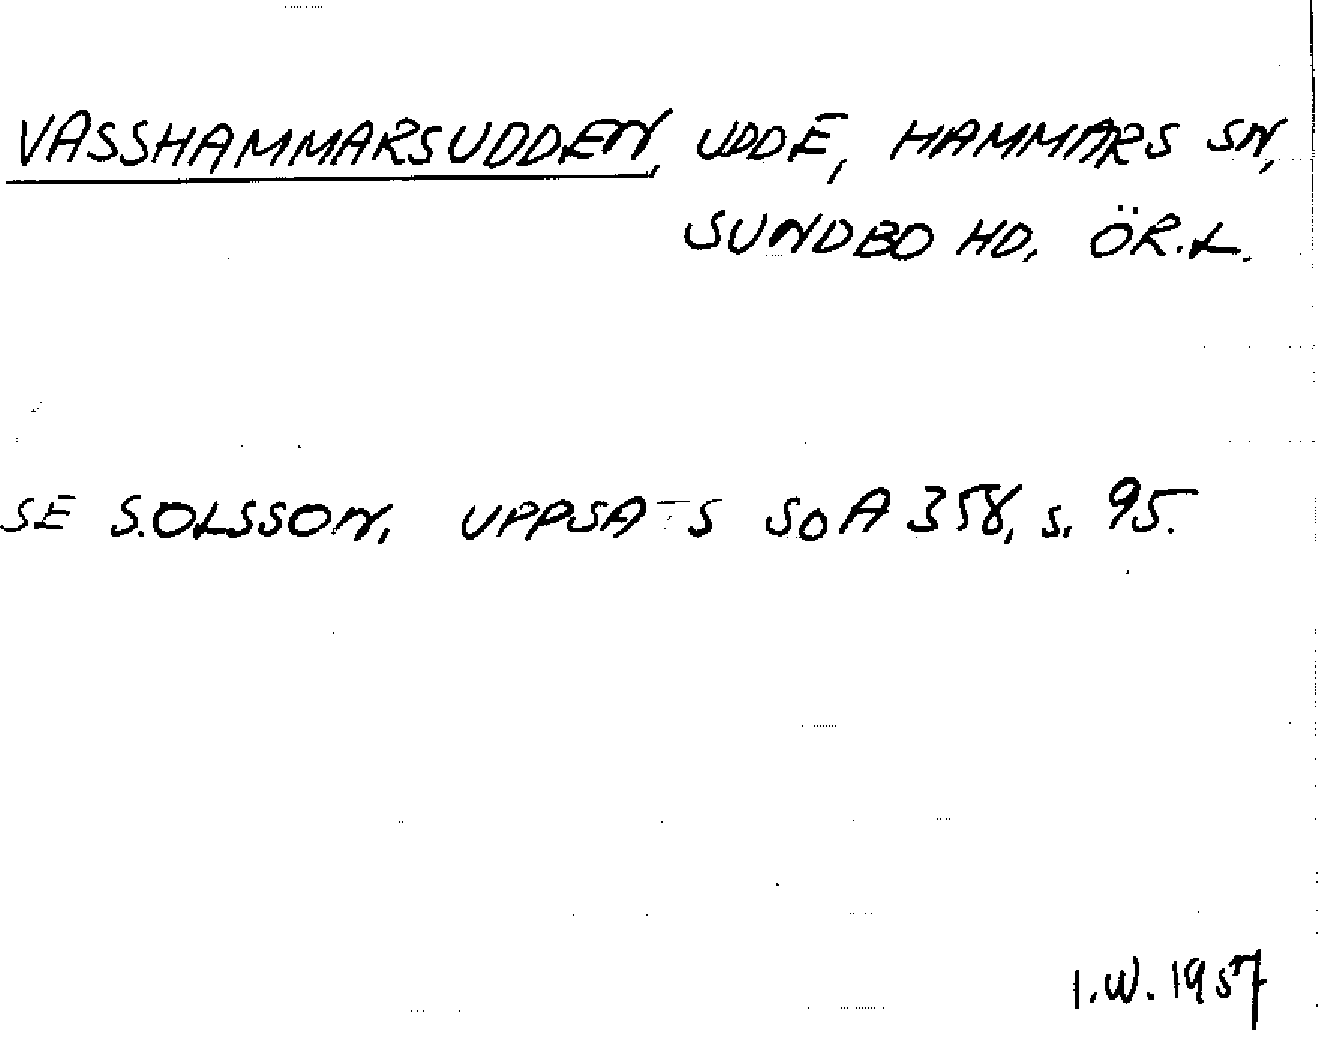 VASSHAMMARSUDDEN, UDDE, HAMMARS SN,
SUNDBO HD, ÖR.L.
SE S.OLSSON, UPPSATS SOA 358, S. 95.
I.W. 1957